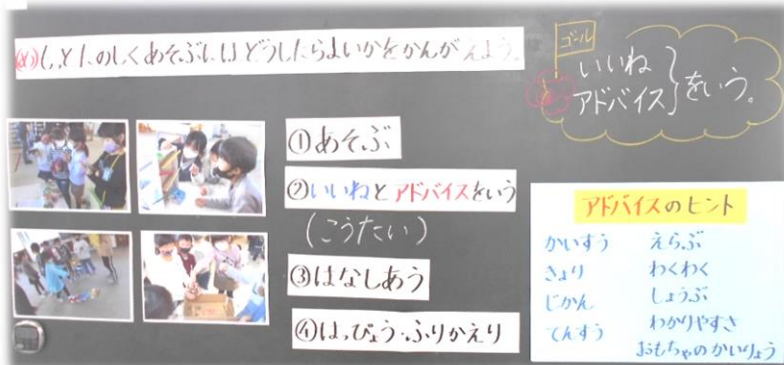 (め)もっとたのしくあそぶにはどうしたらよいかをかんがえよう。
ゴール
いいね
アドバイス
をいう。
①あそぶ
②いいねとアドバイスをいう
(こうたい)
③はなしあう
④はっぴょう・ふりかえり
アドバイスのヒント
かいすう　えらぶ
きょり　わくわく
じかん　しょうぶ
てんすう　わかりやすさ
おもちゃのかいりょう